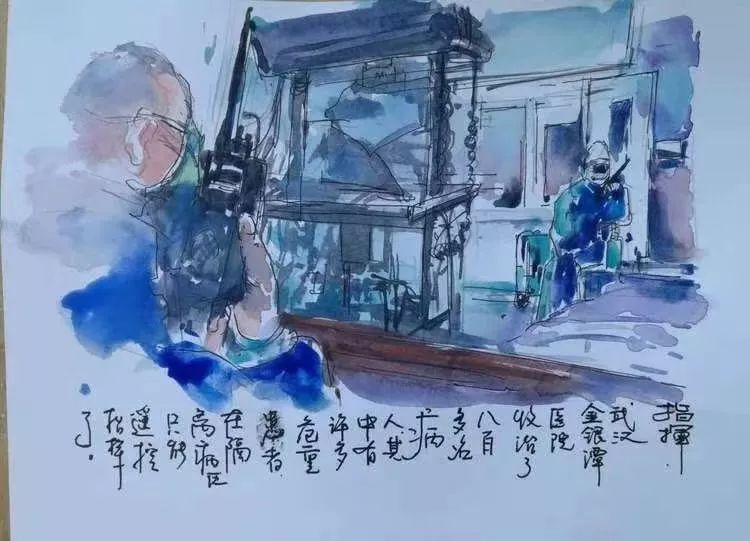 指挥.
武汉
金银潭
医院
收治了
八百
多名
病
人其
中有
许多
危重
患者.
在隔
离病区
只能
遥控
指挥
了.